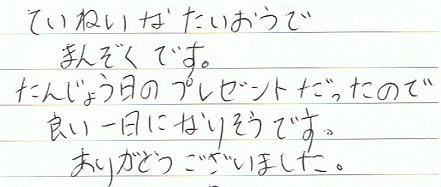 ていねいなたいおうで
まんぞくです。
たんじょう日のプレゼントだったので
良い一日になりそうです。
ありがとうございました。